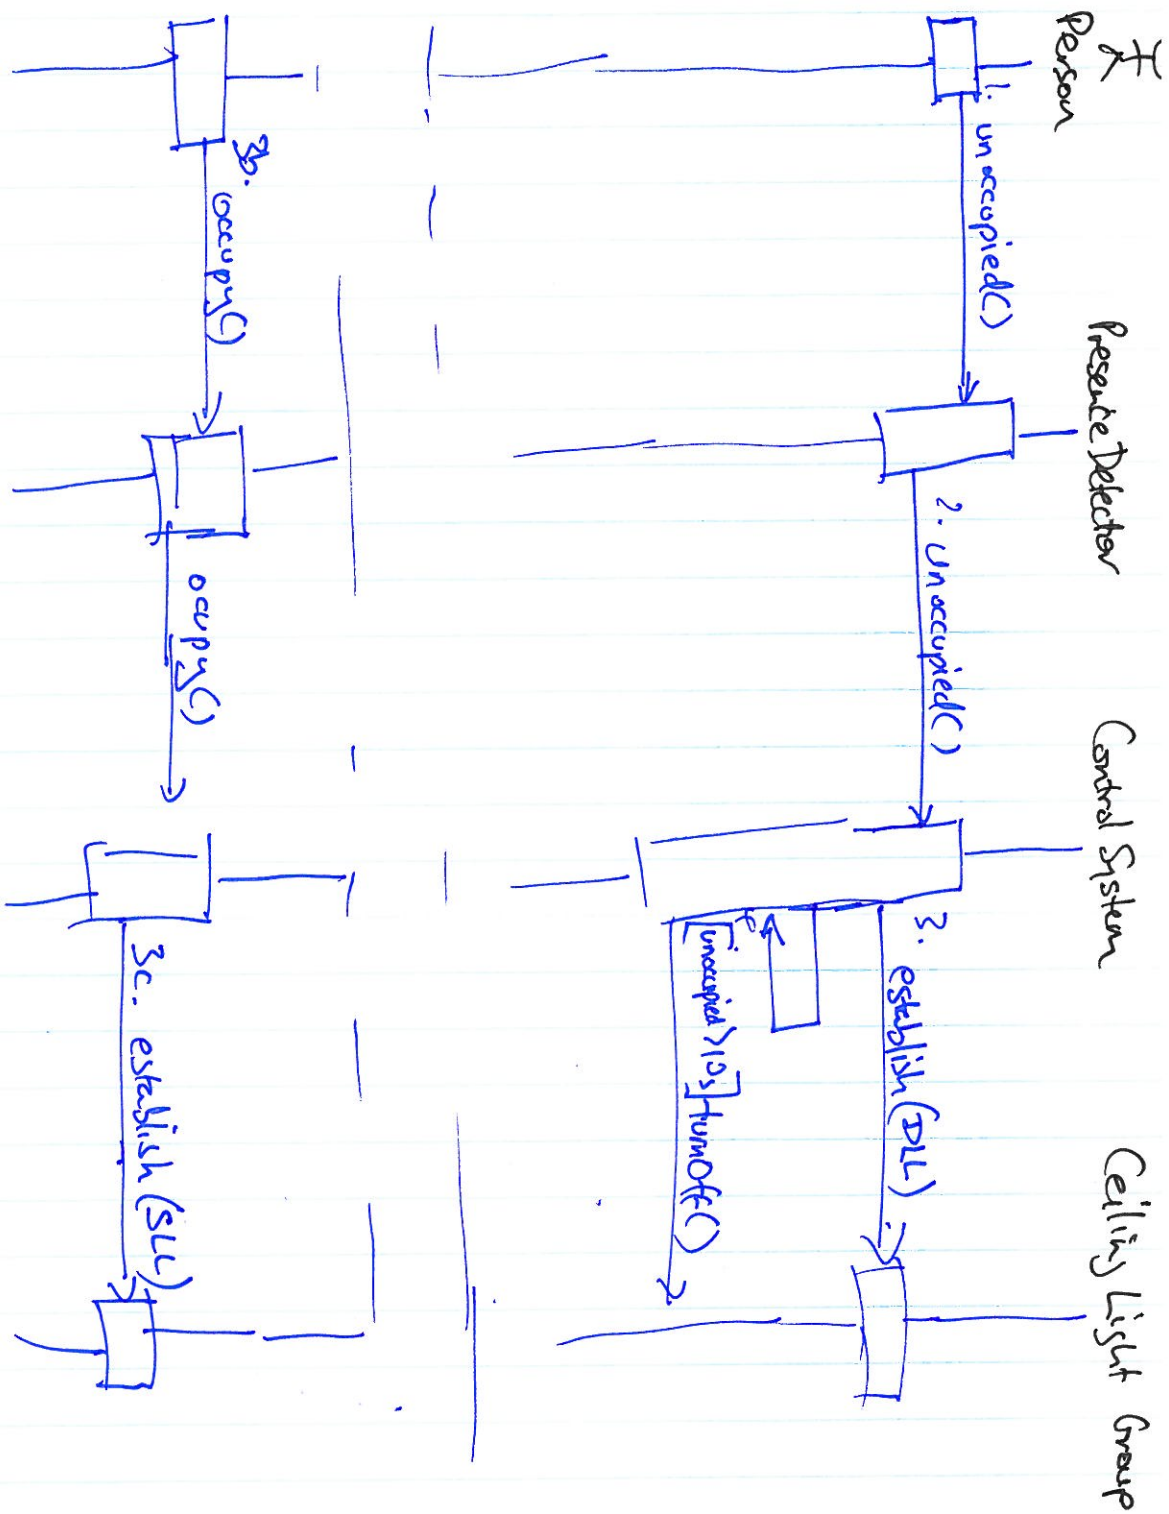 Person
Presence Detector
Control System
Ceiling Light Group
1. unoccupied()
2. unoccupied()
3. establish (DLL)
[unoccupied > 10s] turnOff()
3b. occupy()
ocupy()
3c. establish (SLL)